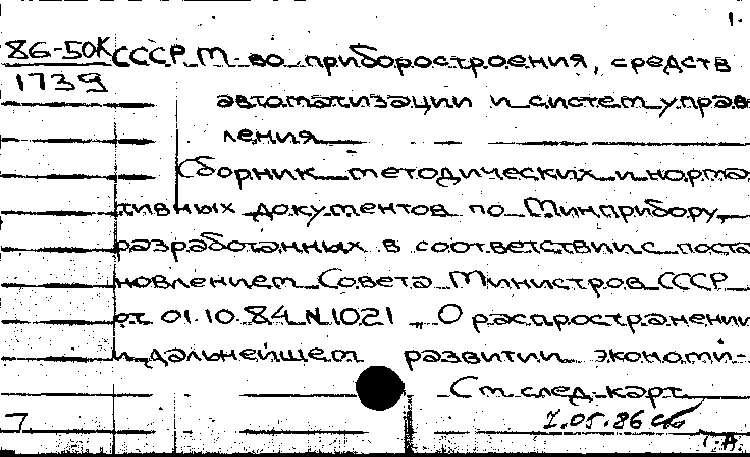 1.
86-50К СССР. М-во приборостроения, средств
1739
автоматизации и систем управ-
ления
Сборник методических и норма-
тивных документов по Минприбору,
разработанных в соответствии с поста-
новлением Совета Министров СССР
от 01.10.84 N1021 „О распространении
и дальнейшем развитии экономи-
См. след. карт.
7.
7.05.86